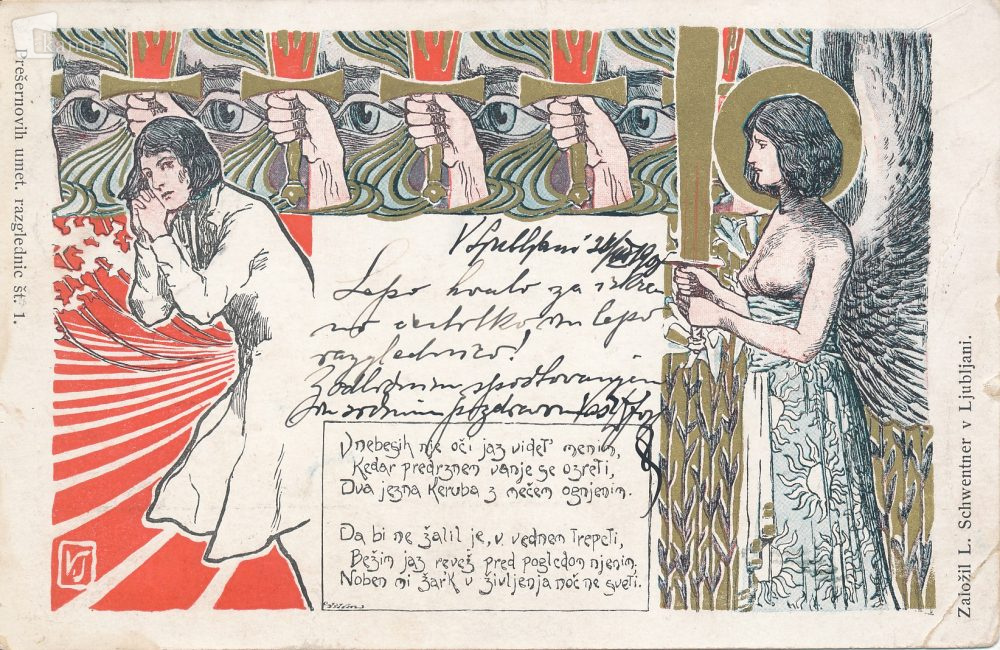 kamra
Prešernovih umet. razglednic št. 1.
V Ljubljani
Lepo hvalo za iskre
no čestitko in lepo
razglednico!
Z odličnim spoštovanjem
in srčnim pozdravom
V nebesih nje oči jaz videt' menim,
Kedar predrznem vanje se ozreti,
Dva jezna keruba z mečem ognjenim.
Da bi ne žalil je, v vednem trepeti,
Bežim jaz revež pred pogledom njenim.
Noben mi žark v življenja noč ne sveti.
Založil L. Schwentner v Ljubljani.